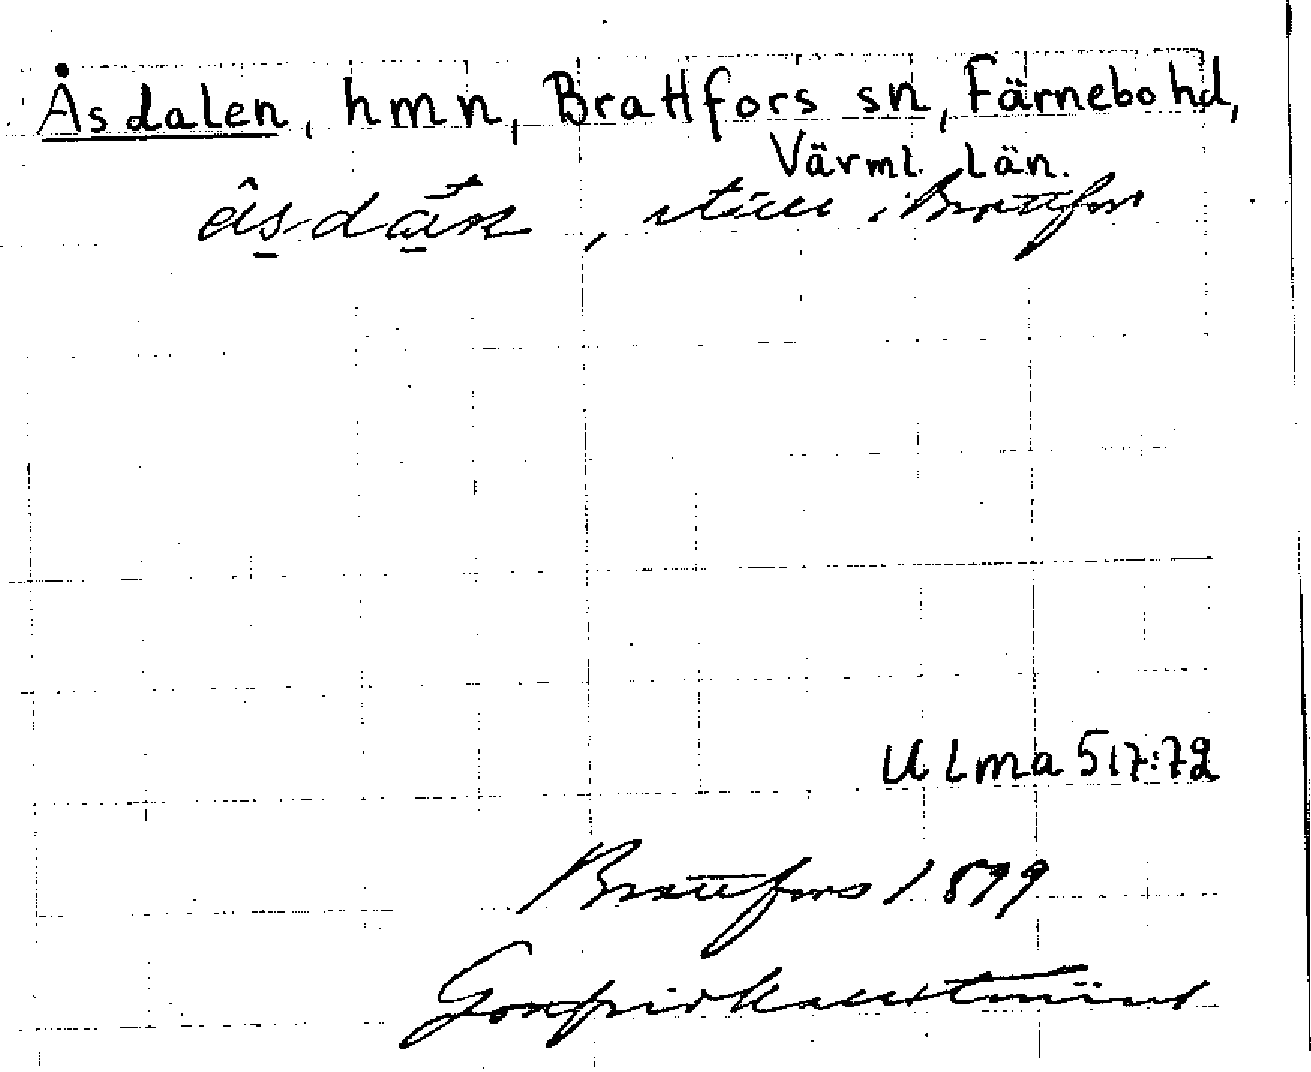 Åsdalen, hmn, Brattfors sn, Färnebo hd,
Värml. Län.
, ställe i Brattfors
Ulma 517:72
Brattfors 1899
Gottfrid Kallstenius